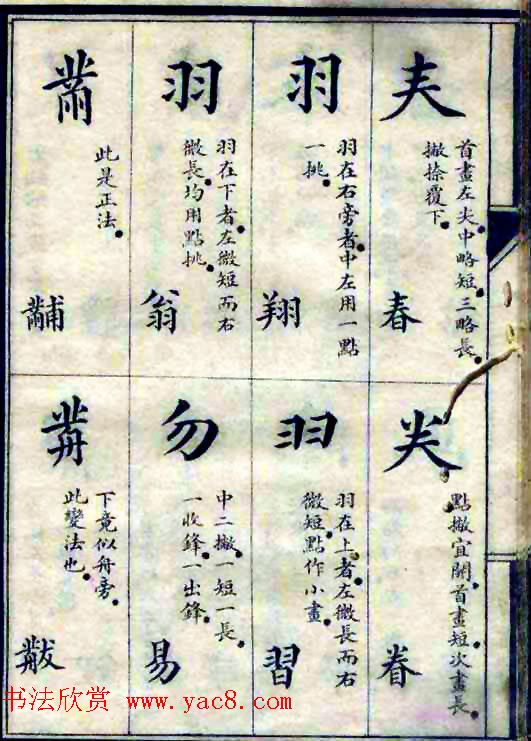 𡗗
首畫左尖中略短三略長
撇捺覆下
春
羽
羽在右旁者中左用一點
一挑
翔
羽
羽在下者左微短而右
微長均用點挑
翁
黹
此是正法
黼
龹
點撇宜開首畫短次畫長
眷
羽
羽在上者左微長而右
微短點作小畫
習
勿
中二撇一短一長
一收鋒一出鋒
易
下竟似舟旁
此變法也
黻
书法欣赏 www.yac8.com